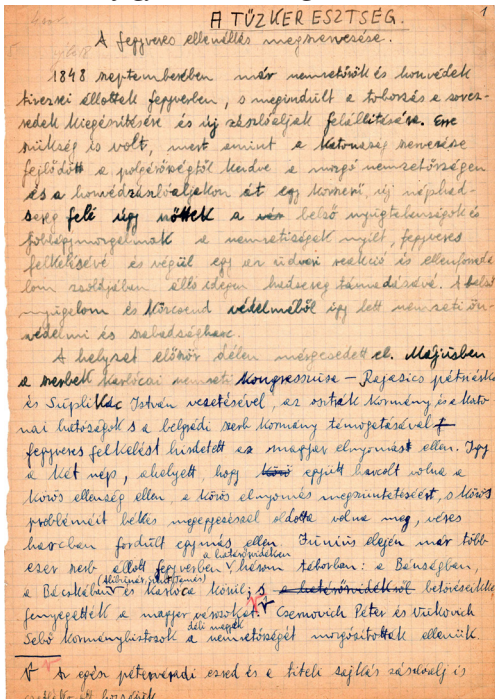 1
A TŰZKERESZTSÉG.
A fegyveres ellenállás megszervezése.
1848 szeptemberében már nemzetőrök és honvédek
ezrei állottak fegyverben, s megindult a toborzás a
zedek kiegészítésére és új zászlóaljak felállítására. Erre
szükség is volt, mert amint a katonaság szervezése
fejlődött a polgárőrségtől kezdve a mozgó nemzetőrségen
és a honvédzászlóaljakon át egy korszerű, új néphad-
sereg felé úgy nőttek a belső nyugtalanságok és
a nemzetiségek nyílt, fegyveres
felkelésévé és végül egy az udvari reakció és ellenforrada
lom zsoldjában álló idegen hadsereg támadásává. A belső
nyugalom és közrend védelméből így lett nemzeti ön-
védelmi és szabadságharc.
A helyzet először délen mérgesedett el. Májusben
a szerbek karlócai nemzeti kongresszusa – Rajasics pátriárka
és Suplikác István vezetésével, az osztrák kormány és a kato-
nai hatóságok s a belgrádi szerb kormány támogatásával
fegyveres felkelést hirdetett az magyar elnyomást ellen. Így
a két nép, ahelyett, hogy együtt harcolt volna a
közös ellenség ellen, a közös elnyomás megszüntetéséért, s közös
problémáit békés megegyezéssel oldotta volna meg, véres
harcban fordult egymás ellen. Június elején már több
a határvidéken
ezer szerb állott fegyverben három táborban: a Bánságban,
a Bácskában és Karlóca körül; s a határőrvidékről betöréseikkel
fenyegették a magyar városokat. Csernovich Péter és Vukovich
déli megyék
Sebő kormánybiztosok a nemzetőrséget mozgósították ellenük.
Az egész péterváradi ezred és a titeli sajkás zászlóalj is